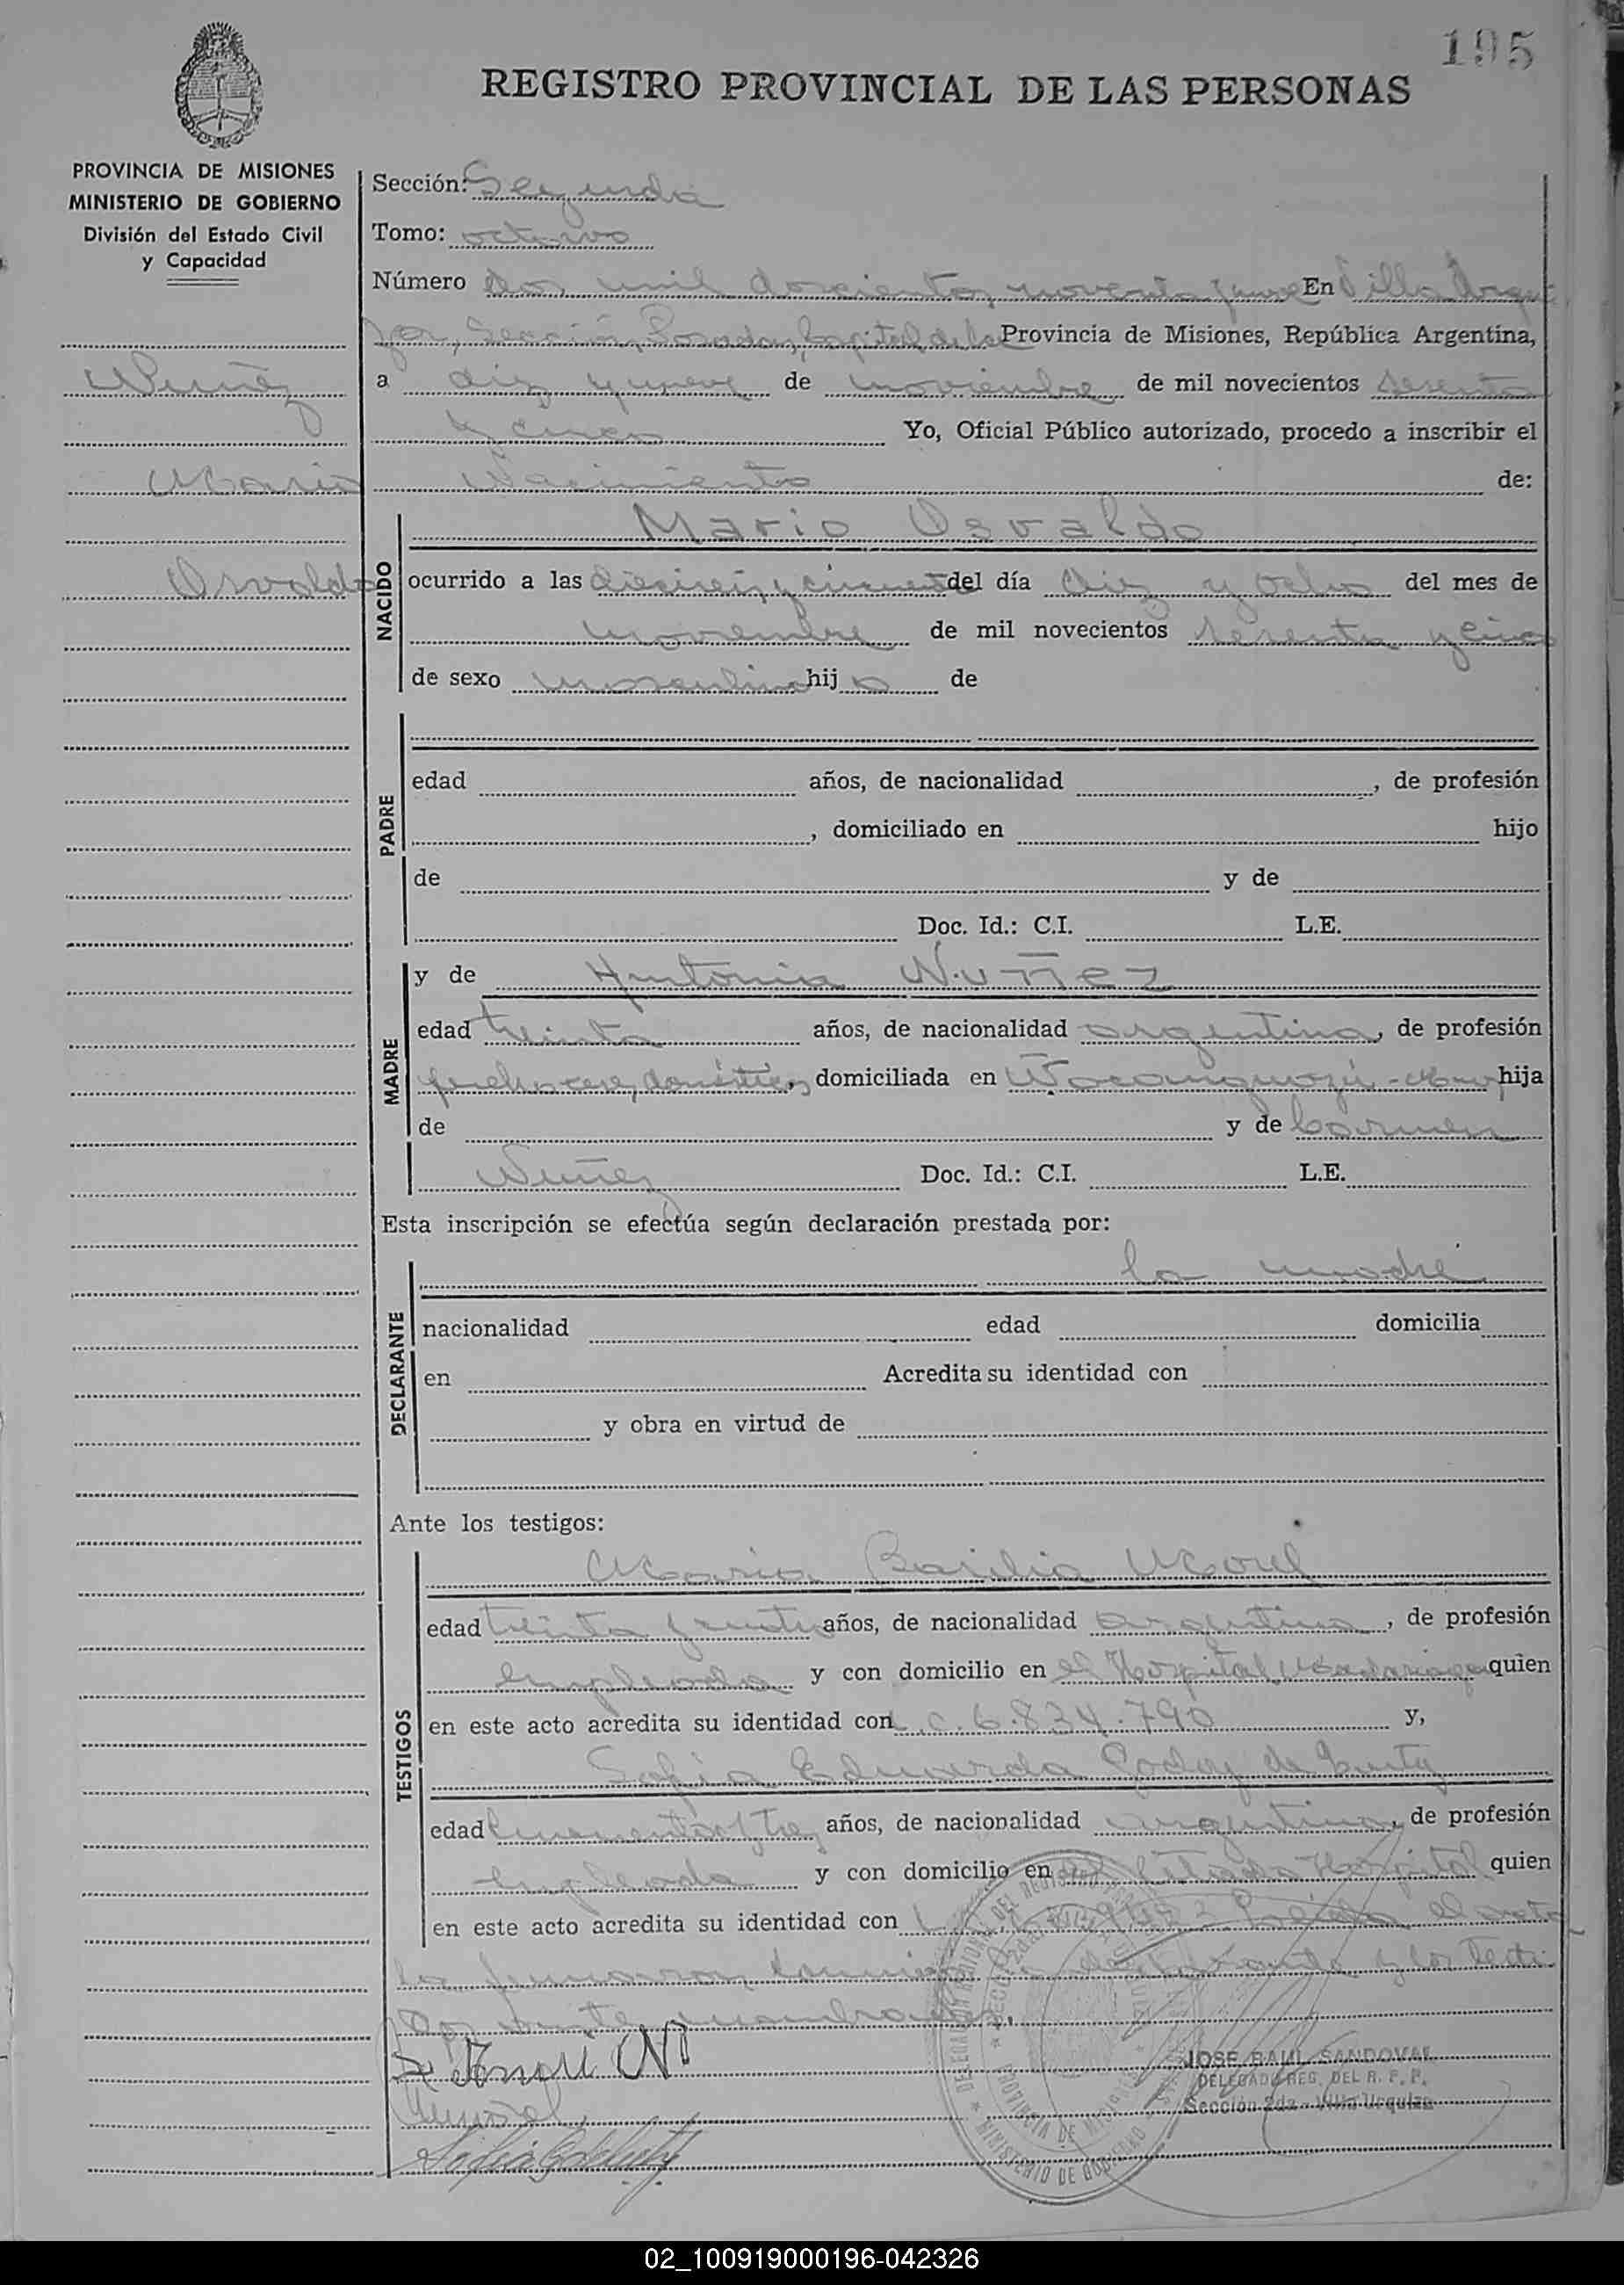 195
REGISTRO PROVINCIAL DE LAS PERSONAS
PROVINCIA DE MISIONES
MINISTERIO DE GOBIERNO
División del Estado Civil
y Capacidad
Nuñez
Mario
Osvaldo
Sección: Segunda
Tomo: octavo
Número dos mil doscientos noventa y nueve En Villa Urqui
za, Sección, Posadas, Capital de la Provincia de Misiones, República Argentina,
a diez y nueve de noviembre de mil novecientos sesenta
y cinco Yo, Oficial Público autorizado, procedo a inscribir el
Nacimiento de:
NACIDO
Mario Osvaldo
ocurrido a las dieciseis y cincuenta del día diez y ocho del mes de
noviembre de mil novecientos sesenta y cinco
de sexo masculino hijo de
PADRE
edad años, de nacionalidad , de profesión
, domiciliado en hijo
de y de
Doc. Id.: C.I. L.E.
MADRE
y de Antonia NuÑez
edad treinta años, de nacionalidad argentina, de profesión
domésticos, domiciliada en hija
de y de Carmen
Nuñez Doc. Id.: C.I. L.E.
Esta inscripción se efectúa según declaración prestada por:
DECLARANTE
la madre
nacionalidad edad domicilia
en Acredita su identidad con
y obra en virtud de
Ante los testigos:
TESTIGOS
Maria Basilia Morel
edad treinta y años, de nacionalidad argentina, de profesión
empleada y con domicilio en el Hospital Madariaga quien
en este acto acredita su identidad con L.C. 6.834.790 y,
Sofia Eduarda Godoy de
edad cuarenta y tres años, de nacionalidad argentina, de profesión
empleada y con domicilio en el citado Hospital quien
en este acto acredita su identidad con Leída el acta
la firmaron la declarante y los testi
gos
JOSE RAUL SANDOVAL
DELEGADO REG. DEL R. P. P.
Sección 2da - Villa Urquiza
MINISTERIO DE GOBIERNO
PROVINCIA DE MISIONES
02_100919000196-042326